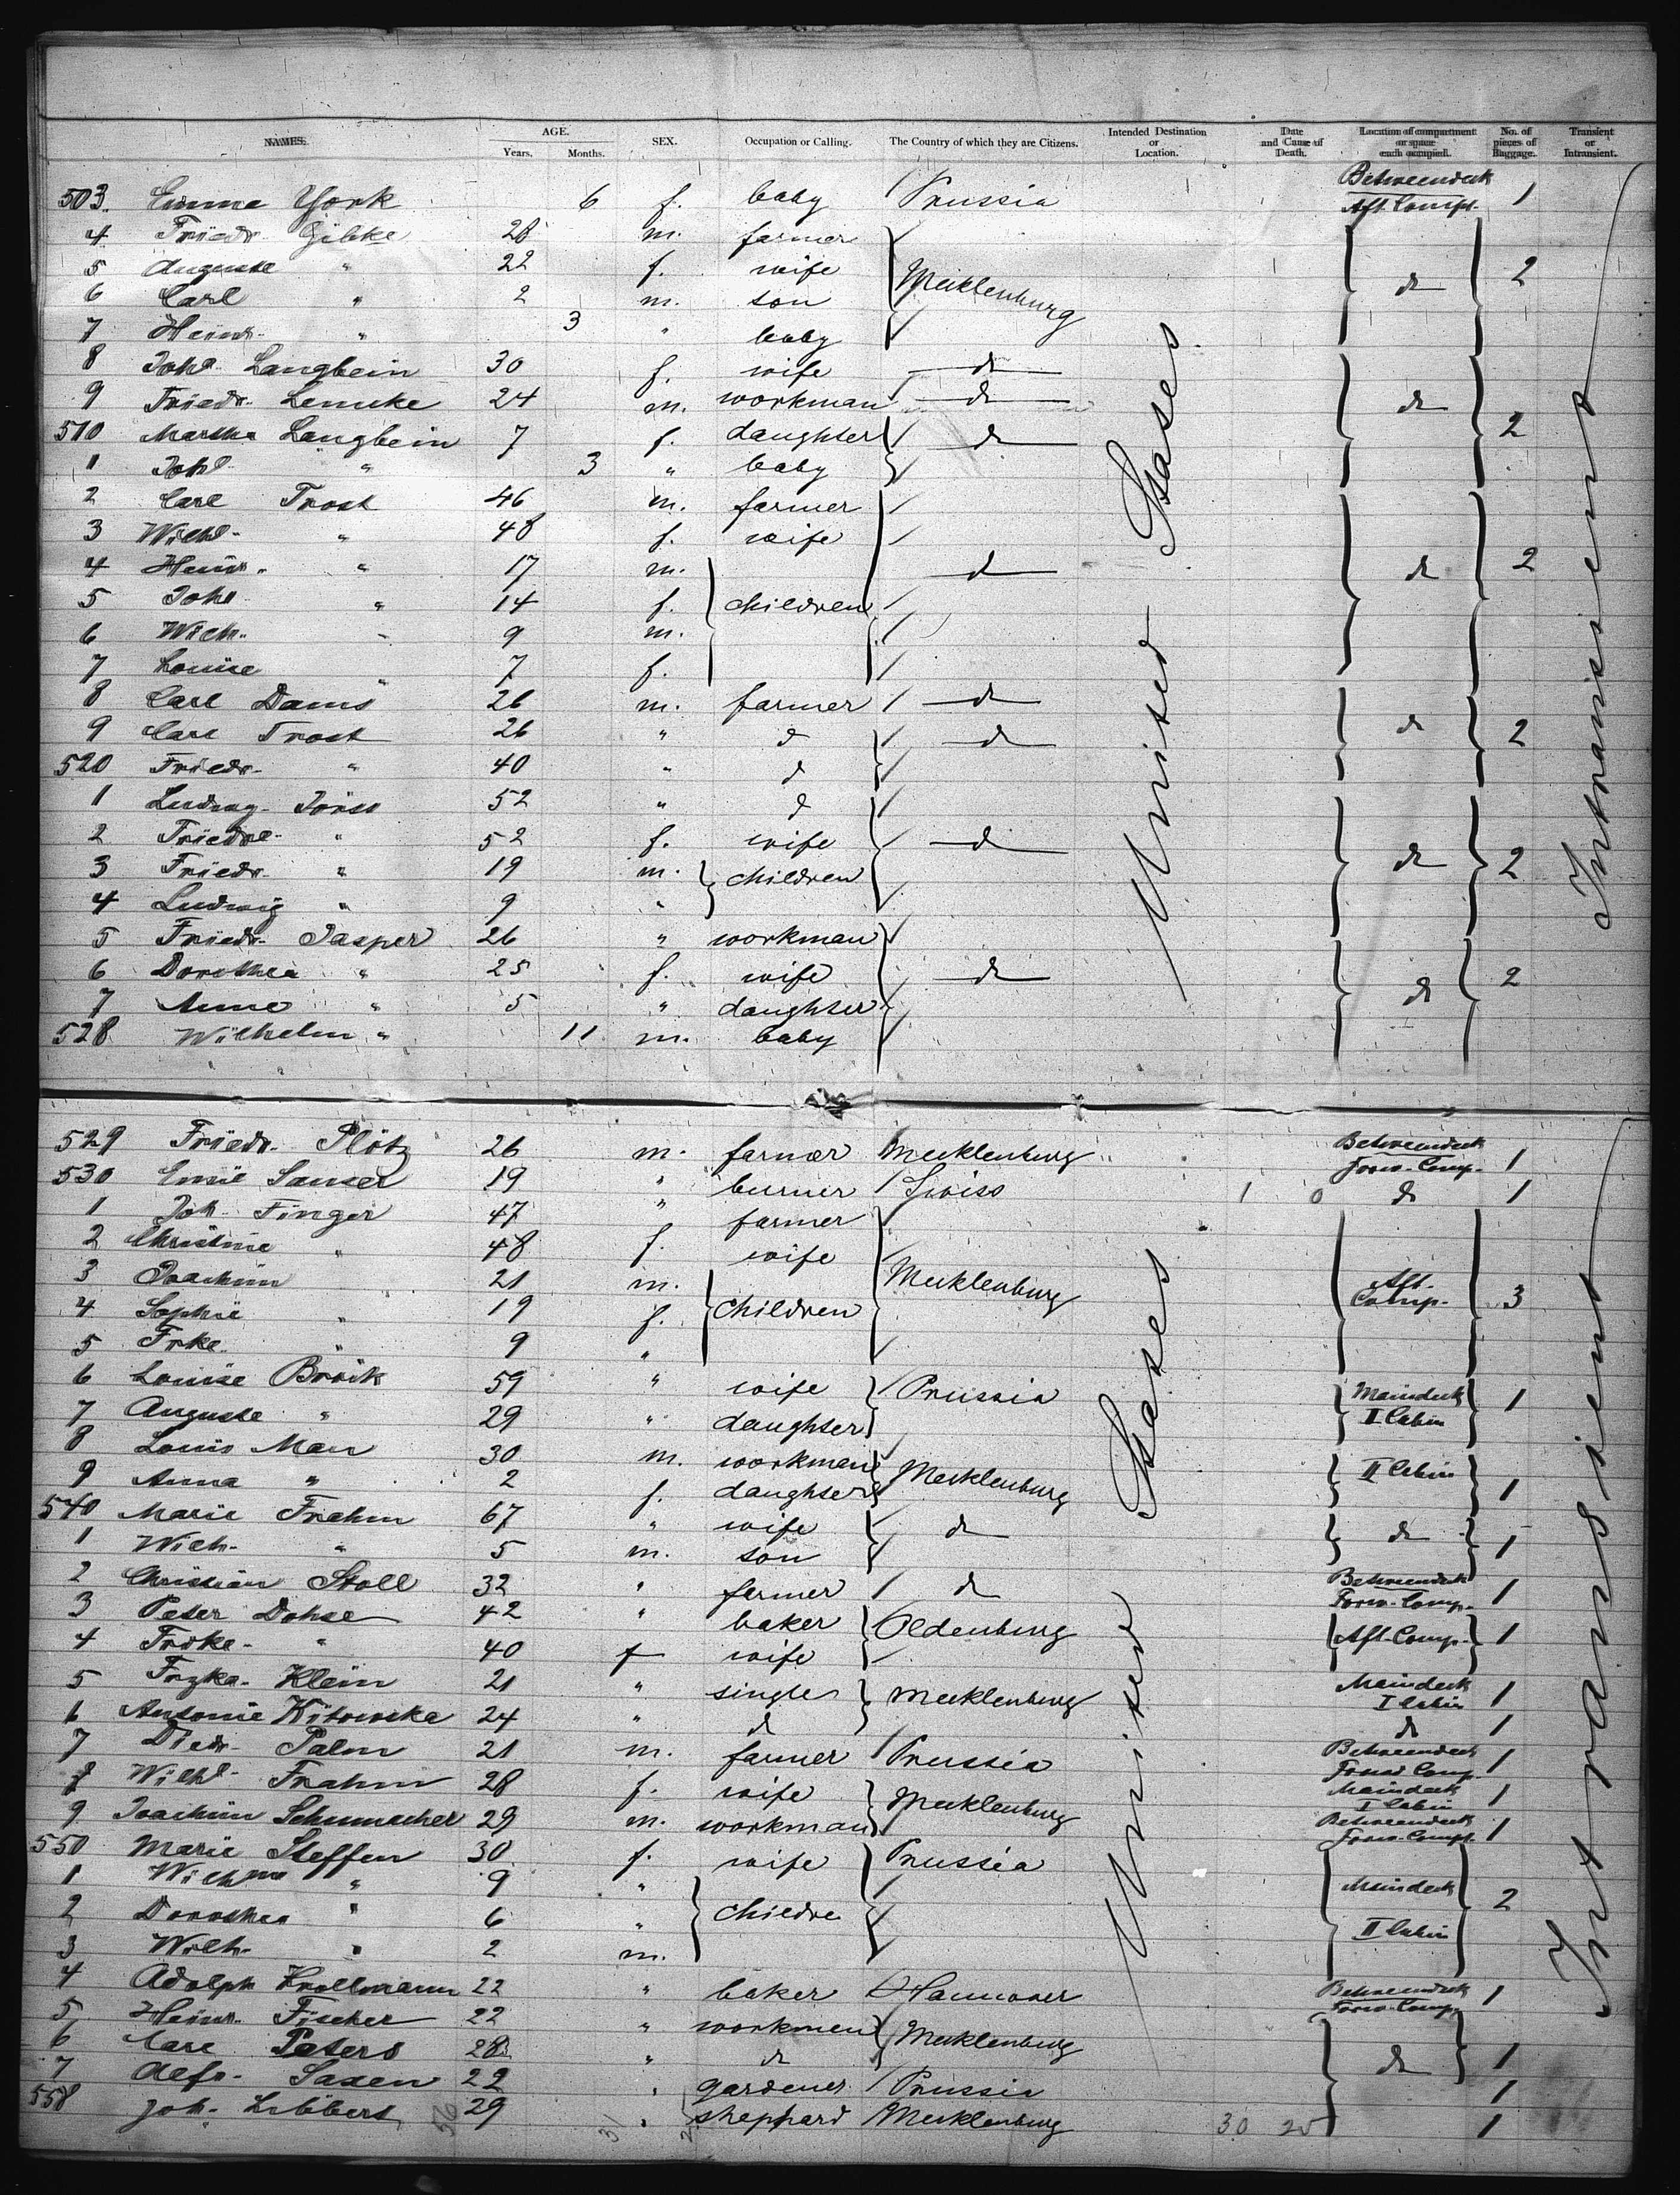 NAMES. AGE. Years. Months. SEX. Occupation or Calling. The Country of which they are Citizens. Intended Destination or Location. Date and Cause of Death. Location of compartment or space each occupied. No. of pieces of Baggage. Transient or Intransient.
503. Emma York 6 f. baby Prussia Betweendeck Aft. Compt. 1
4 Friedr. Gibke 28 m. farmer
5 Auguste " 22 f. wife Mecklenburg do 2
6 Carl " 2 m. son
7 Heinr. " 3 " baby
8 Johe Langbein 30 f. wife do
9 Friedr. Lemcke 24 m. workman do do
510 Martha Langbein 7 f. daughter do 2
1 Joh. " 3 " baby
2 Carl Trost 46 m. farmer
3 Wilhe. " 48 f. wife
4 Heinr. " 17 m. do do 2
5 Johe " 14 f. children
6 Wilh. " 9 m.
7 Louise " 7 f.
8 Carl Dams 26 m. farmer do
9 Carl Trost 26 " do do do 2
520 Friedr. " 40 " do
1 Ludwig 52 " do
2 Friedre. " 52 f. wife do
3 Friedr. " 19 m. children do 2
4 Ludwig " 9 "
5 Friedr. Jasper 26 " workman
6 Dorothea " 25 f. wife do do 2
7 Anne " 5 " daughter
528 Wilhelm " 11 m. baby
United States
Intransient
529 Friedr. Plötz 26 m. farmer Mecklenburg Betweendeck Forw. Comp. 1
530 19 " Swiss 1 0 do 1
1 Joh. Finger 47 " farmer
2 Christine " 48 f. wife
3 Joachim 21 m. Mecklenburg Aft. Comp. 3
4 Sophie " 19 f. children
5 Frke. " 9 "
6 Louise 59 " wife Prussia Maindeck II Cabin 1
7 Auguste " 29 " daughter
8 Louis Man 30 m. workman Mecklenburg II Cabin
9 Anna " 2 f. daughter 1
540 Marie Frahm 67 " wife do do
1 Wilh. " 5 m. son 1
2 Christian Stoll 32 " farmer do Betweendeck Forw. Comp. 1
3 Peter Dohse 42 " baker Oldenburg Aft. Comp. 1
4 Frdke. " 40 f wife
5 Frzka. Klein 21 " single Mecklenburg Maindeck I Cabin 1
6 Antonie Kitowska 24 " do do 1
7 Diedr. Palm 21 m. farmer Prussia Betweendeck Forw. Comp. 1
8 Wilhe. Frahm 28 f. wife Mecklenburg Maindeck I Cabin 1
9 Joachim Schumacher 29 m. workman Betweendeck Forw. Comp. 1
550 Marie Steffen 30 f. wife Prussia
1 Wilhme " 9 " Maindeck 2
2 Dorothea " 6 " childre II Cabin
3 Wilh. " 2 m.
4 Adolph Krollmann 22 " baker Hannover Betweendeck Forw. Comp. 1
5 Heinr. Fischer 22 " workmen Mecklenburg
6 Carl Peters 28 " do do 1
7 Alfr. Saxen 22 " gardener Prussia 1
558 Joh. Lübbert 29 " shephard Mecklenburg 30 25 1
United States
Intransient